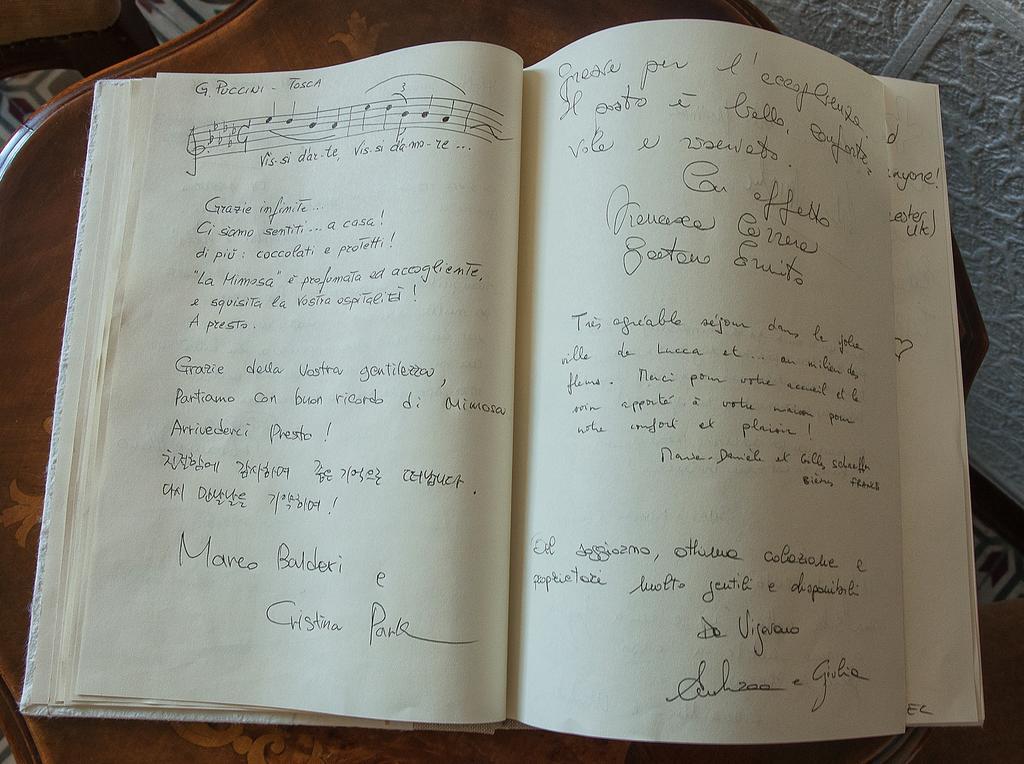 G. PUCCINI - TOSCA
3
Vis-si d'ar-te, vis-si d'a-mo-re ...
Grazie infinite...
Ci siamo sentiti... a casa!
di più: coccolati e protetti!
"La Mimosa" è profumata ed accogliente,
e squisita la vostra ospitalità!
A presto.
Grazie della vostra gentilezza,
Partiamo con buon ricordo di Mimosa
Arrivederci Presto!
친절함에 감사하며 좋은 기억으로 떠납니다.
다시 만날날을 기약하며!
Marco Balderi
e
Cristina Park
Grazie per l'accoglienza.
Il posto è bello, conforte-
vole e riservato.
Con affetto
Francesca
Gaetano
Très agréable séjour dans la jolie
ville de Lucca et... au milieu des
fleurs. Merci pour votre accueil et le
soin apporté à votre maison pour
notre confort et plaisir!
Marie-Danièle et Gilles
Bièvres FRANCE
soggiorno, ottima colazione e
proprietari molto gentili e disponibili
Da Vigevano
e Giulia
UK)